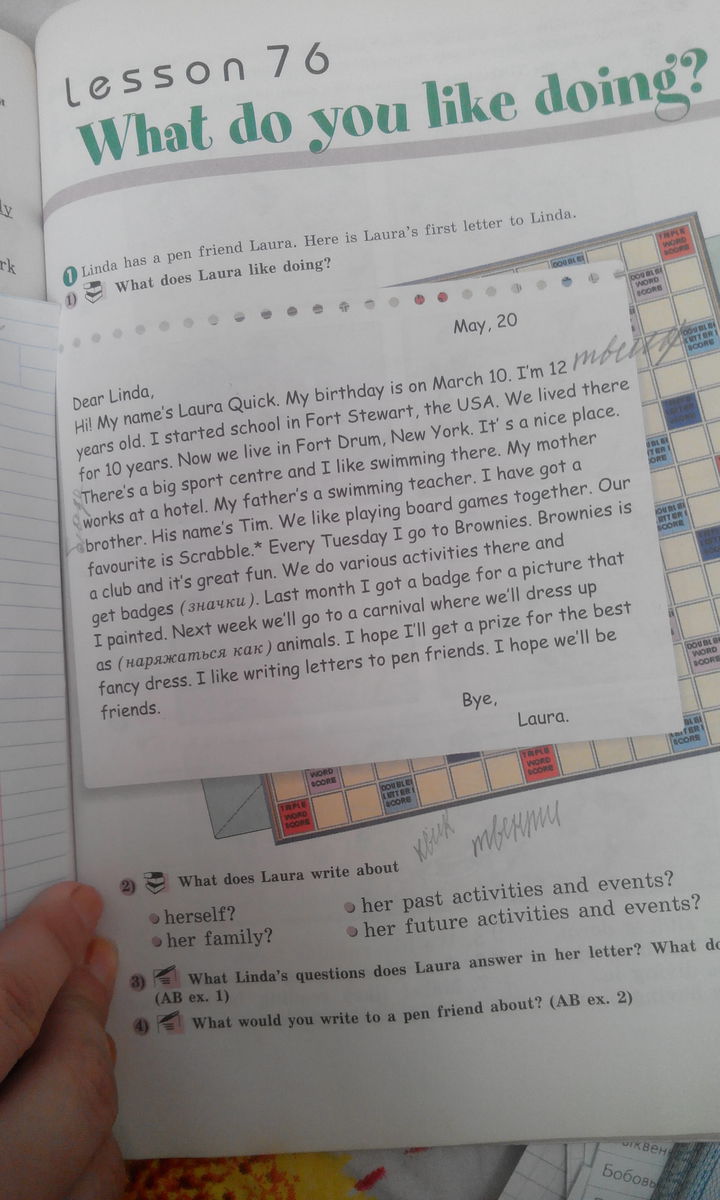 Lesson 76
What do you like doing?
1 Linda has a pen friend Laura. Here is Laura's first letter to Linda.
1) What does Laura like doing?
May, 20
Dear Linda,
Hi! My name's Laura Quick. My birthday is on March 10. I'm 12
years old. I started school in Fort Stewart, the USA. We lived there
for 10 years. Now we live in Fort Drum, New York. It's a nice place.
There's a big sport centre and I like swimming there. My mother
works at a hotel. My father's a swimming teacher. I have got a
brother. His name's Tim. We like playing board games together. Our
favourite is Scrabble.* Every Tuesday I go to Brownies. Brownies is
a club and it's great fun. We do various activities there and
get badges (значки). Last month I got a badge for a picture that
I painted. Next week we'll go to a carnival where we'll dress up
as (наряжаться как) animals. I hope I'll get a prize for the best
fancy dress. I like writing letters to pen friends. I hope we'll be
friends.
Bye,
Laura.
TRIPLE WORD SCORE
DOUBLE WORD SCORE
DOUBLE LETTER SCORE
WORD SCORE
DOUBLE LETTER SCORE
TRIPLE WORD SCORE
TRIPLE WORD SCORE
DOUBLE WORD SCORE
квик твенти
2) What does Laura write about
herself?
her family?
her past activities and events?
her future activities and events?
3) What Linda's questions does Laura answer in her letter? What do
(AB ex. 1)
4) What would you write to a pen friend about? (AB ex. 2)
ly
rk
Бобовы